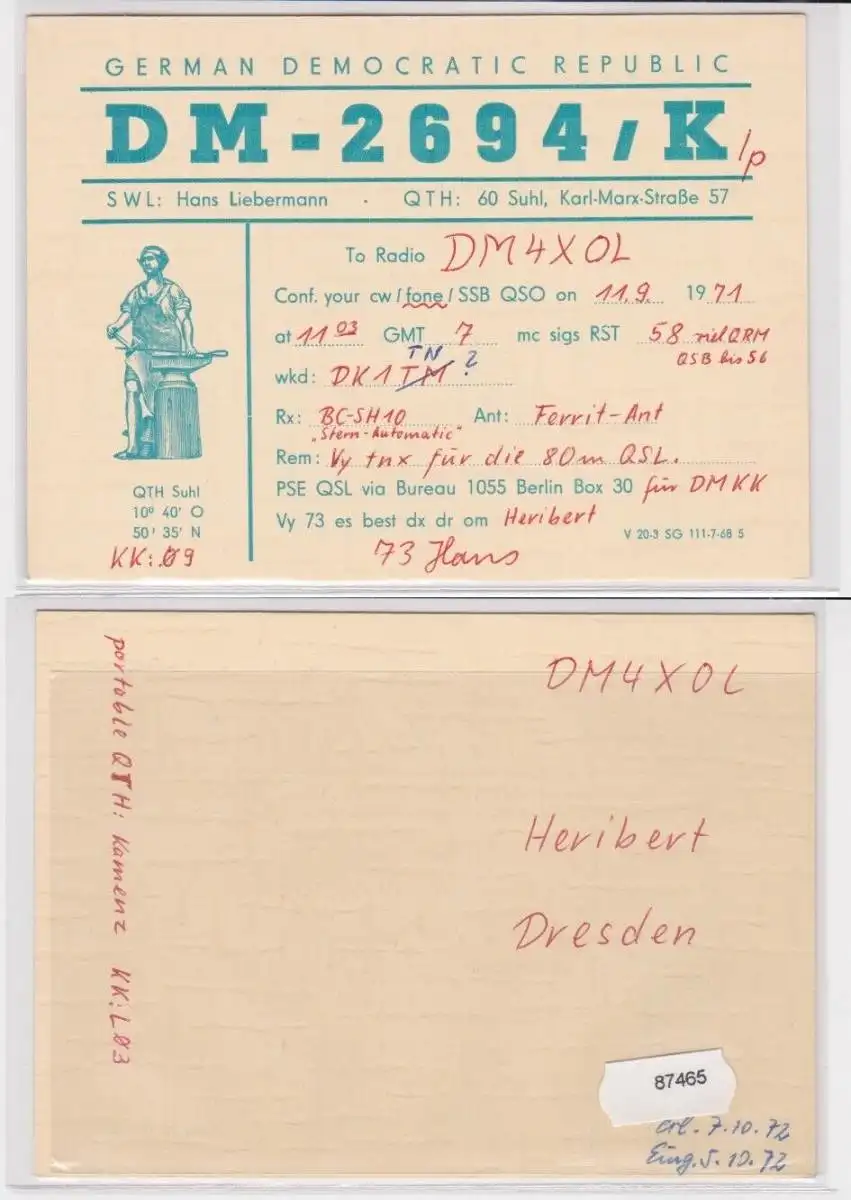 GERMAN DEMOCRATIC REPUBLIC
DM-2694/K/p
SWL: Hans Liebermann · QTH: 60 Suhl, Karl-Marx-Straße 57
To Radio DM4XOL
Conf. your cw / fone / SSB QSO on 11.9. 19 71
at 11 03 GMT 7 mc sigs RST 58 viel QRM
QSB bis 56
TN ?
wkd: DK1TM
Rx: BC-SH10 Ant: Ferrit-Ant
"Stern-Automatic"
Rem: Vy tnx für die 80m QSL.
PSE QSL via Bureau 1055 Berlin Box 30 für DMKK
Vy 73 es best dx dr om Heribert
V 20-3 SG 111-7-68 5
73 Hans
QTH Suhl
10° 40' O
50' 35' N
KK: Ø9
portable QTH: Kamenz KK: LØ3
DM4XOL
Heribert
Dresden
87465
erl. 7.10.72
Eing. 5.10.72